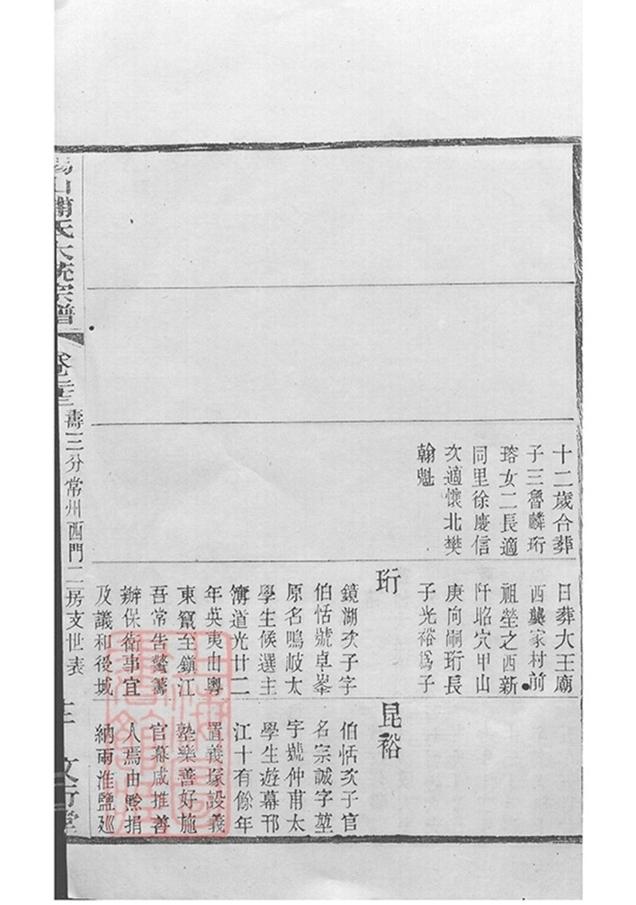 十二歲合葬
子三魯麟珩
瑢女二長適
同里徐慶信
次適懷北樊
翰魁
日葬大王廟
西龔家村前
祖塋之西新
阡昭穴甲山
庚向嗣珩長
子光裕為子
珩
鏡湖次子字
伯恬號卓峯
原名鳴岐太
學生候選主
簿道光廿二
年英夷由粵
東竄至鎮江
吾常告警籌
辦保衛事宜
及議和後城
昆裕
伯恬次子官
名宗誠字堃
宇號仲甫太
學生遊幕邗
江十有餘年
置義塚設義
塾樂善好施
官幕咸推善
人焉由賑捐
納兩淮鹽廵
山浦氏大統宗譜
卷 壽三分常州西門二房支世表
三
文行堂